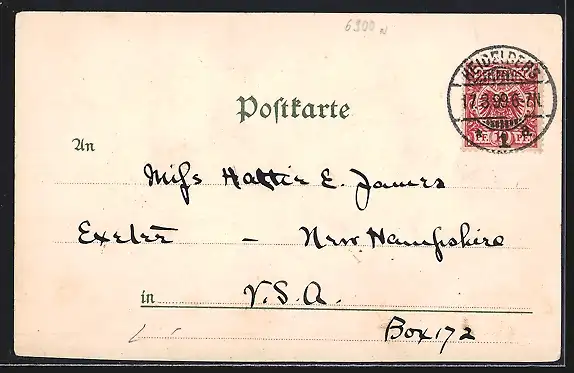 6900 N
HEIDELBERG
17.3.99.6-7N.
1.
PF. 10 PF.
Poſtkarte
An
Miſs Hattie E. James
Exeter – New Hampshire
in U.S.A.
Box 172